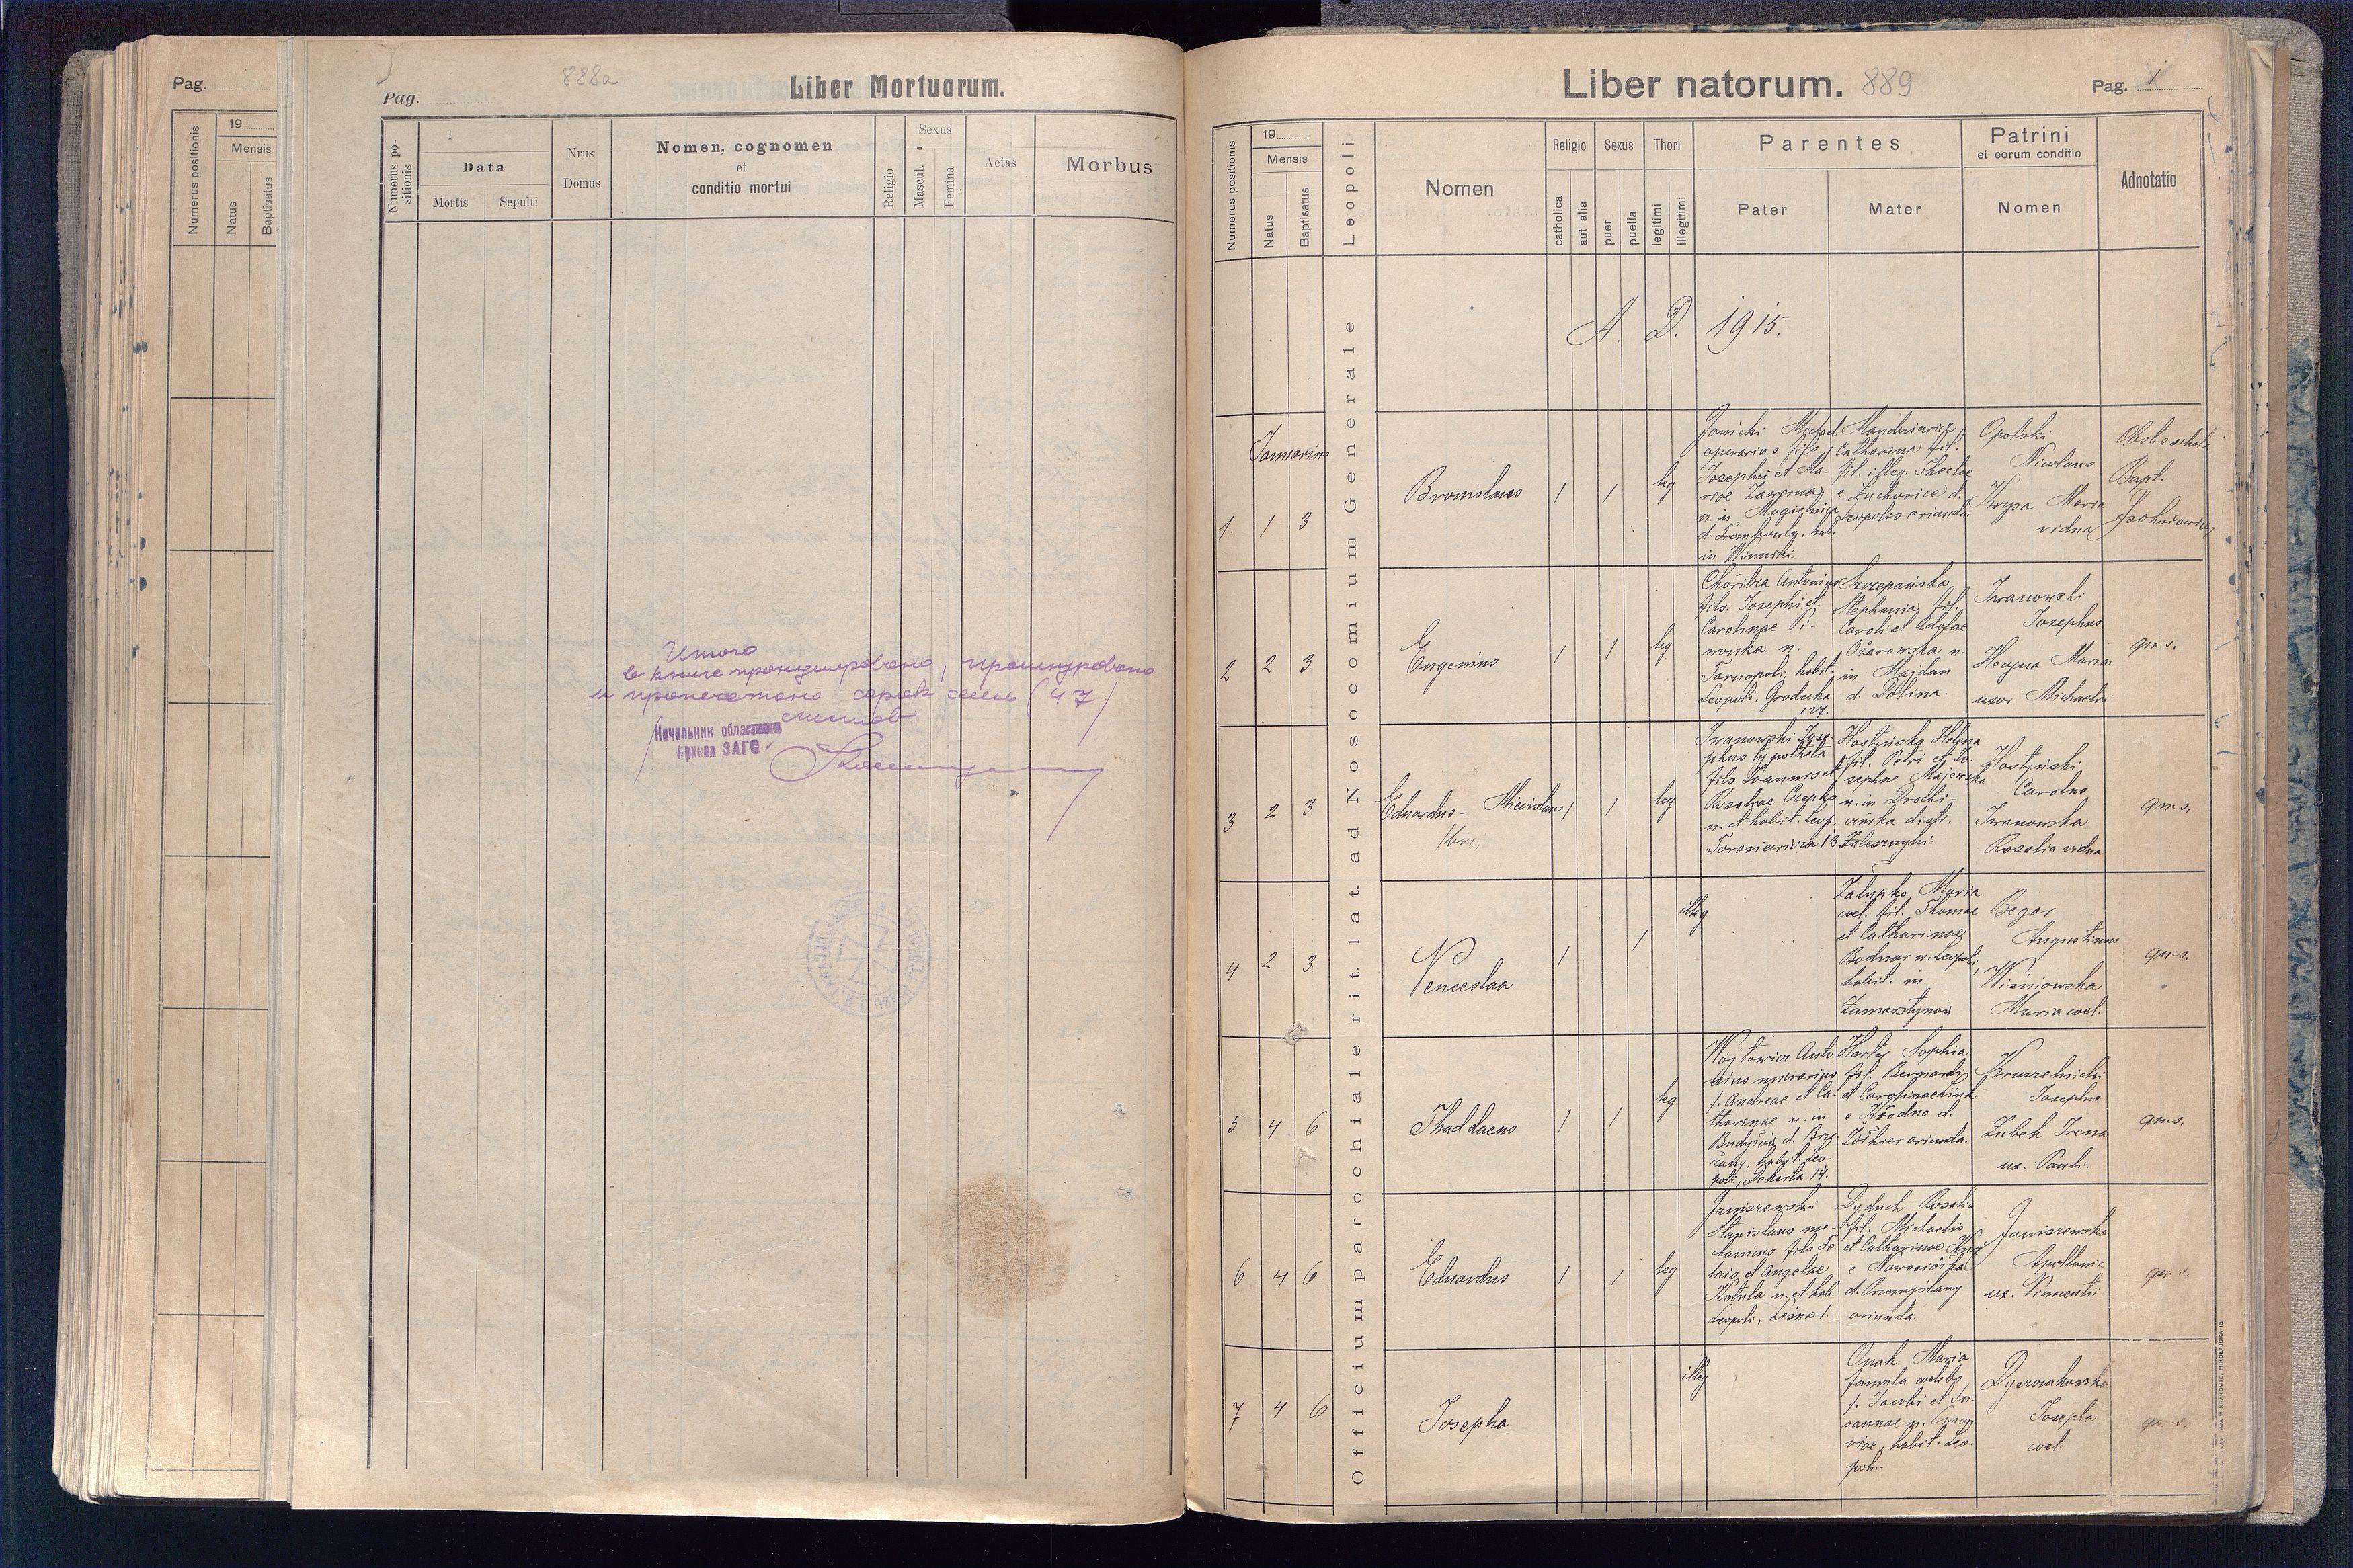 Pag.
19
Mensis
Numerus positionis
Natus
Baptisatus
Pag.
888a
Liber Mortuorum.
Numerus positionis
1
Data
Mortis
Sepulti
Nrus
Domus
Nomen, cognomen
et
conditio mortui
Religio
Sexus
Mascul.
Femina
Aetas
Morbus
Итого
в книге пронумеровано, прошнуровано
и пропечатано сорок семь (47)
листов
Начальник областного
Архива ЗАГС
Liber natorum. 889
Pag. 1
Numerus positionis
19
Mensis
Natus
Baptisatus
Leopoli
Officium parochiale rit. lat. ad Nosocomium Generale
Nomen
Religio
catholica
aut alia
Sexus
puer
puella
Thori
legitimi
illegitimi
Parentes
Pater
Mater
Patrini
et eorum conditio
Nomen
Adnotatio
A. D. 1915.
Januarius
1. 1 3
Bronislaus
1 1 leg
Janicki Michael
operarius fils
Josephi et Ma-
riae
n. in Mogielnica
d. Trembowla. hab.
in Winniki
Catharina fil.
fil. illeg. Theclae
e Zuchorice d.
Leopolis oriunda
Opolski
Nicolaus
Krypa Maria
vidua
Obste
Bapt.
2 2 3
Eugenius
1 1 leg
Antonius
fils. Josephi et
Carolinae Pi-
n.
Tarnopoli, habit.
Leopoli, Grodecka
127.
Szczepańska
Stephania fil.
Caroli et Adelae
Ożarowska n.
in Majdan
d. Dolina.
Iwanowski
Josephus
Maria
uxor Michaelis
qu. s.
3 2 3
Eduardus - Miecislaus
1 1 leg
Iwanowski Jose-
phus typotheta
fils Joannis et
Rosaliae Czepka
n. et habit. Leop.
13
Hostyńska Helena
fil. Petri et Jo-
sephae Majewska
n. in
distr.
Zaleszczyki.
Hostyński
Carolus
Iwanowska
Rosalia vidua
qu. s.
4 2 3
Venceslaa
1 1 illeg
Zalupko Maria
coel. fil. Thomae
et Catharinae
Bodnar n. Leopoli,
habit. in
Zamarstynów
Begar
Augustinus
Wiśniowska
Maria coel.
qu. s.
5 4 6
Thaddaeus
1 1 leg
Wojtowicz Anto
nius murarius
f. Andreae et Ca-
tharinae n. in
Budyłów d. Brze
żany, habit. Leo-
poli, 14.
Sophia
fil. Bernardi
et Carolinae
e d.
Żółkiew oriunda.
Kruszelnicki
Josephus
Zubek Irena
ux. Pauli.
qu. s.
6 4 6
Eduardus
1 1 leg
Janiszewski
Stanislaus me-
hanicus fils Fe-
licis et Angelae
Kotula n. et hab.
Leopoli, Leśna 1.
Dyduch Rosalia
fil. Michaelis
et Catharinae
e
d. Przemyślany
oriunda.
Janiszewska
Apollonia
ux. Vincentii
qu. s.
7 4 6
Josepha
illeg
Onak Maria
famula coelebs
f. Jacobi et Su-
sannae n. Craco
viae, habit. Leo-
poli.
Josepha
coel.
qu. s.